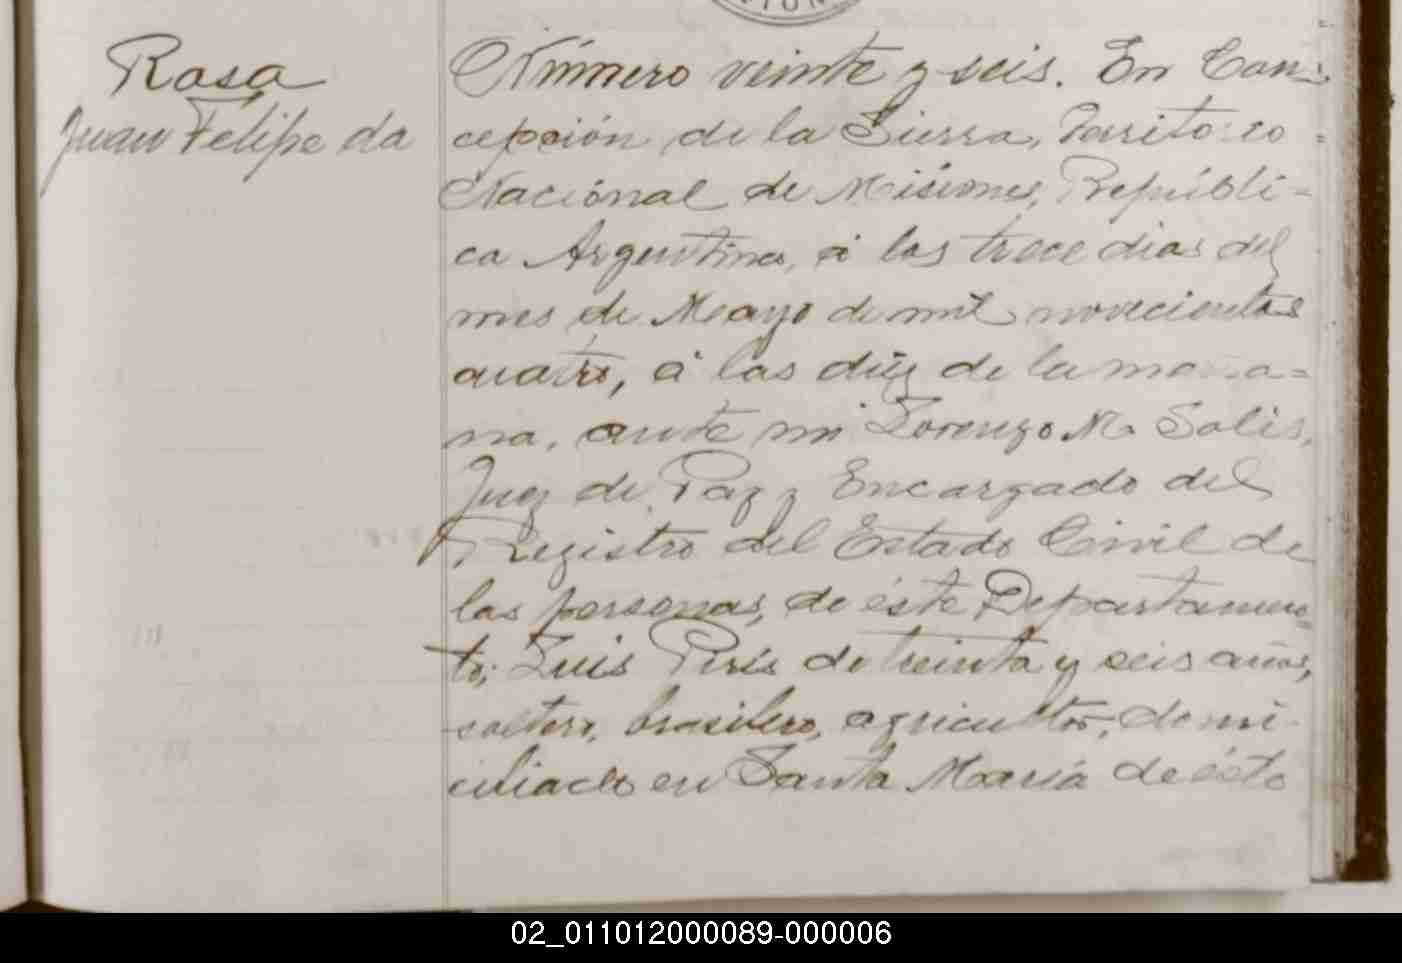 CION
Rosa
Juan Felipe da
Número veinte y seis. En Con=
cepción de la Sierra, Territorio
Nacional de Misiones, Repúbli=
ca Argentina, á los trece dias del
mes de Mayo de mil novecientos
cuatro, á las diez de la maña=
na, ante mi Lorenzo M. Solis,
Juez de Paz y Encargado del
Registro del Estado Civil de
las personas, de éste Departamen=
to; Luis Piris de treinta y seis años,
soltero, brasilero, agricultor, domi
ciliado en Santa María de ésto
02_011012000089-000006